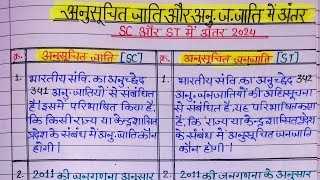 अनुसूचित जाति और अनु.ज.जाति में अंतर
SC और ST में अंतर 2024
क्र. अनुसूचित जाति [SC]
1. भारतीय संवि. का अनुच्छेद
341 अनु. जातियों से संबंधित
है। इसमें परिभाषित किया है,
कि किसी राज्य या केन्द्रशासित
प्रदेश के संबंध में अनु.जाति कौन
होगी।
2. 2011 की जनगणना अनुसार
क्र. अनुसूचित जनजाति [ST]
1. भारतीय संवि. का अनुच्छेद 342
अनु. जनजातियों की अधिसूचना
से संबंधित है, यह परिभाषित करता
है, कि राज्य या केन्द्रशासित प्रदेश
के संबंध में अनुसूचित जनजाति
कौन होगी।
2. 2011 की जनगणना के अनुसार